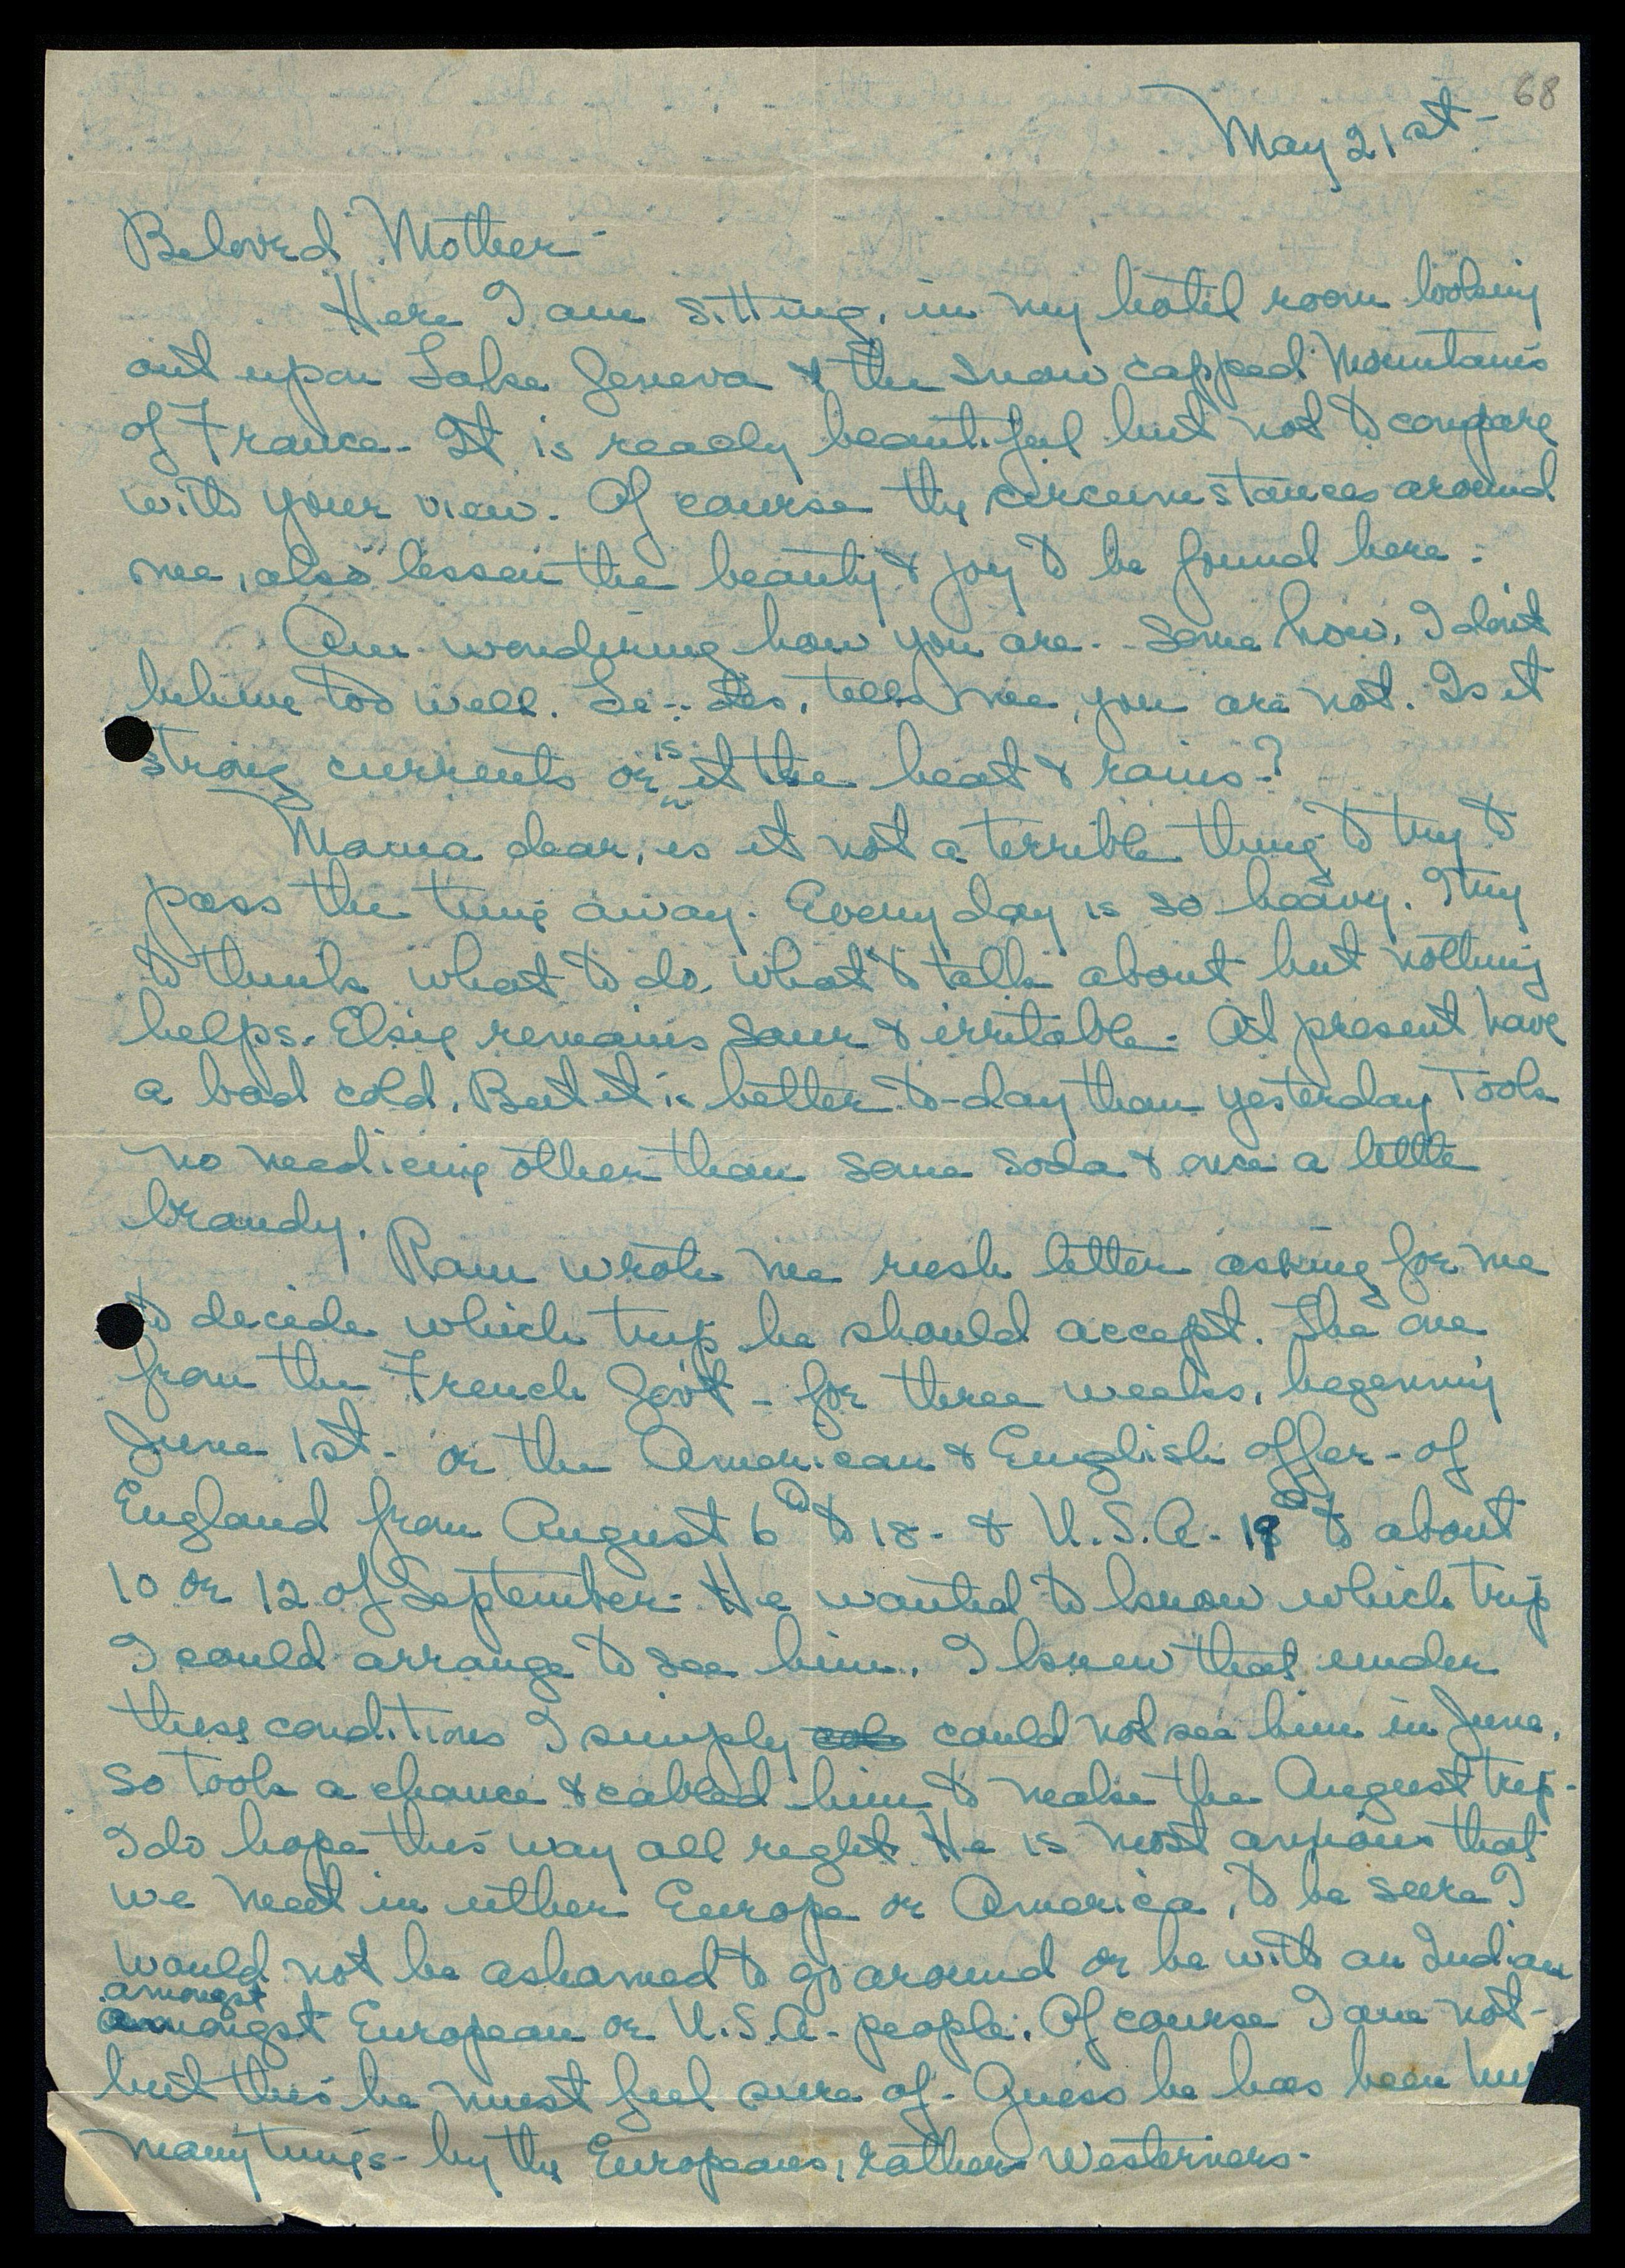 68
May 21st-
Beloved Mother-
Here I am sitting, in my hotel room looking
out upon Lake Geneva & the snow capped Mountains
of France- It is really beautiful but not to compare
with your view. Of course the circumstances around
me, also lessen the beauty & joy to be found here.
Am wondering how you are-- Some how, I don't
believe too well. tells me, you are not. Is it
strong currents or is it the heat & rains-?
Mama dear, is it not a terrible thing to try to
pass the time away. Every day is so heavy. I try
to think what to do, what to talk about but nothing
helps. Elsie remains sour & irritable- At present have
a bad cold, But it is better to-day than yesterday Took
no medicine other than some soda & once a little
brandy.
Ram wrote me rush letter asking for me
to decide which trip he should accept. The one
from the French Gov't - for three weeks, beginning
June 1st- or the American & English offer- of
England from August 6th to 18- & U.S.A- 19th to about
10 or 12 of September- He wanted to know which trip
I could arrange to see him. I knew that under
these conditions I simply could not see him in June,
so took a chance & cabled him to make the August trip-
I do hope this way all right He is most anxious that
we meet in either Europe or America, to be sure I
would not be ashamed to go around or be with an Indian
amongst
amongst European or U.S.A- people. Of course I am not-
but this he must feel sure of- Guess he has been
many times- by the Europeans, rather Westerners-